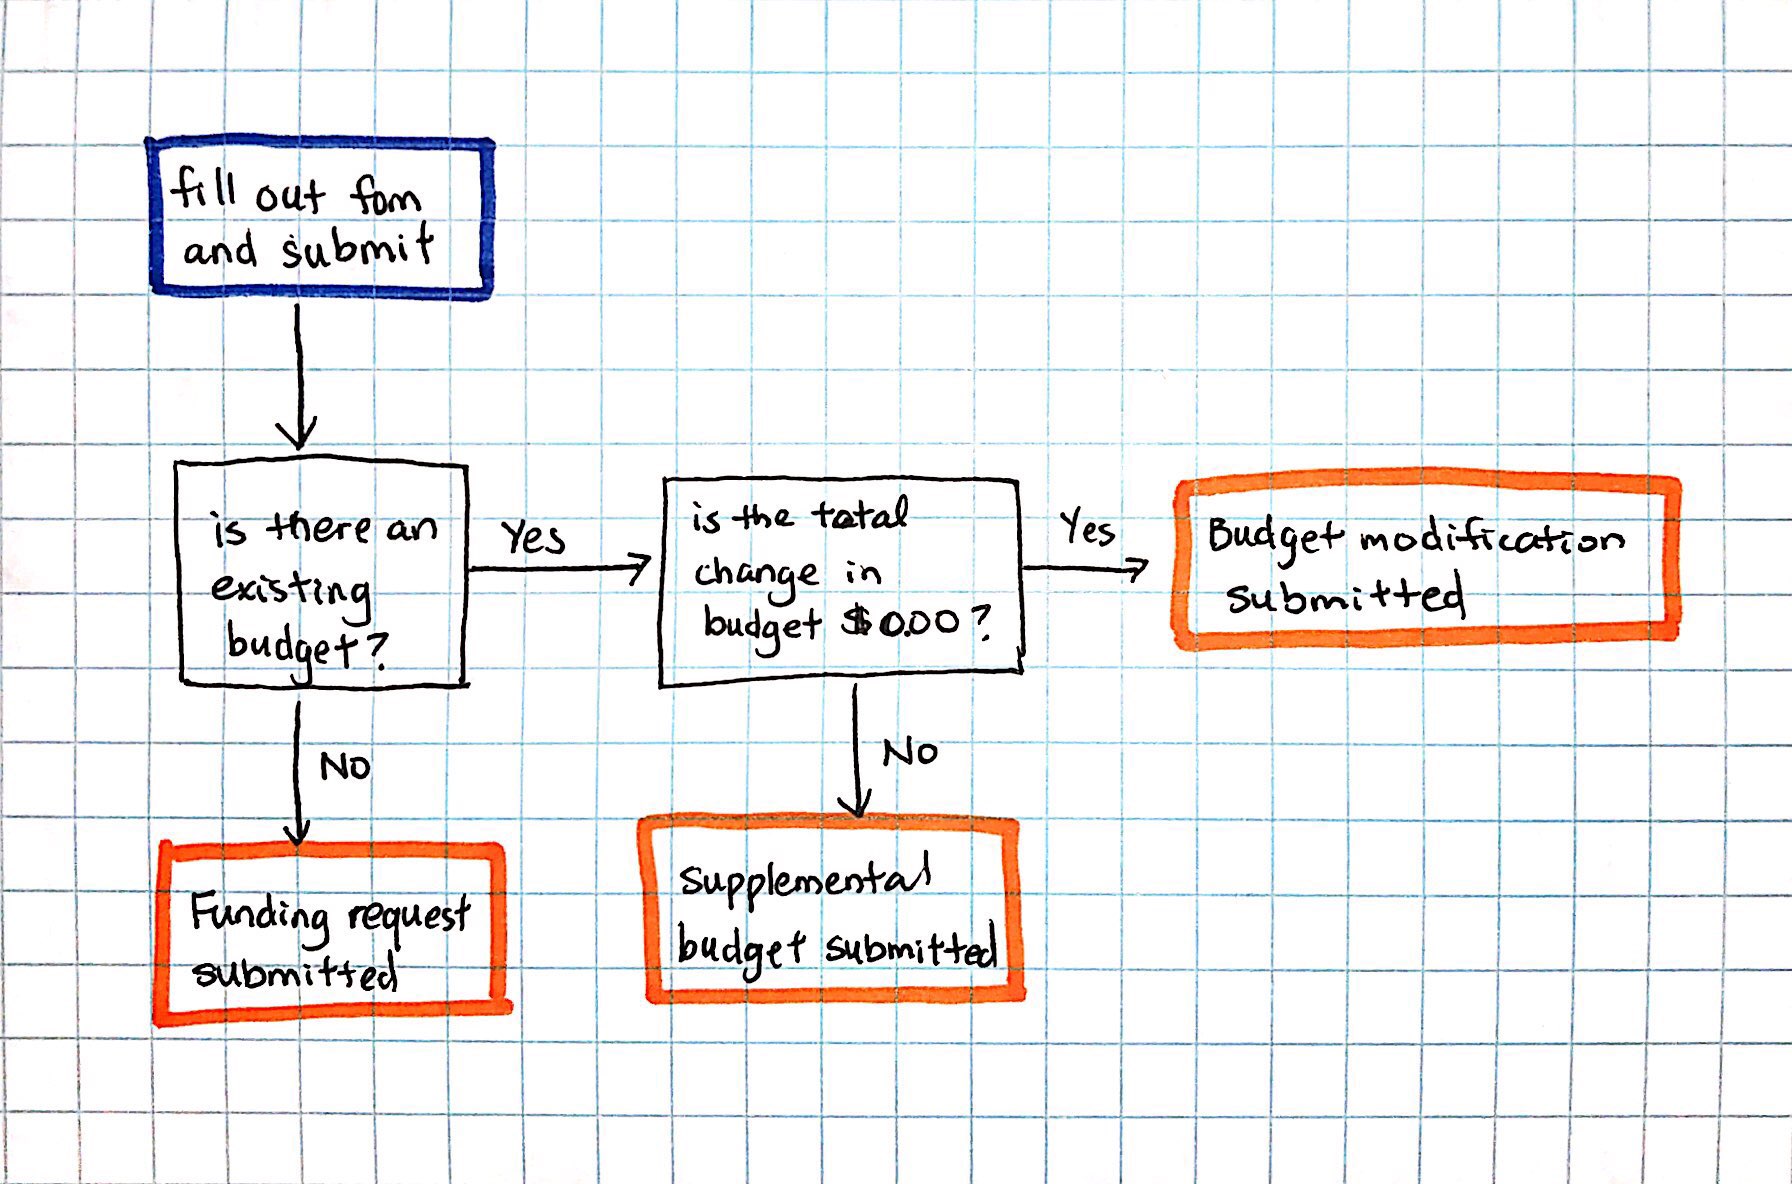 fill out form
and submit
is there an
existing
budget?
Yes
is the total
change in
budget $0.00?
Yes
Budget modification
submitted
No
No
Funding request
submitted
supplemental
budget submitted